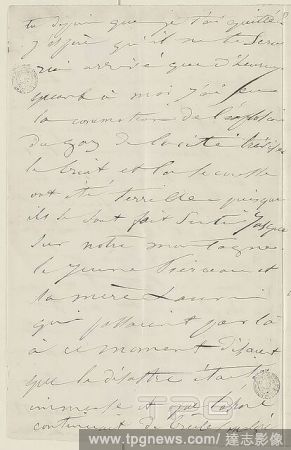 tu depuis que je t'ai quitté?
J'espère qu'il ne te sera
rien arrivé que d'heureux
quant à moi j'ai eu
la commotion de l'explosion
du gaz de la cité
le bruit et la secousse
ont été terribles puisque
ils se sont fait sentir jusque
sur notre montagne.
le jeune et
la mère
qui passaient par là
à ce moment disent
que le désastre était
immense et que
continuait de
TPG
www.tpgnews.com / 達志影像